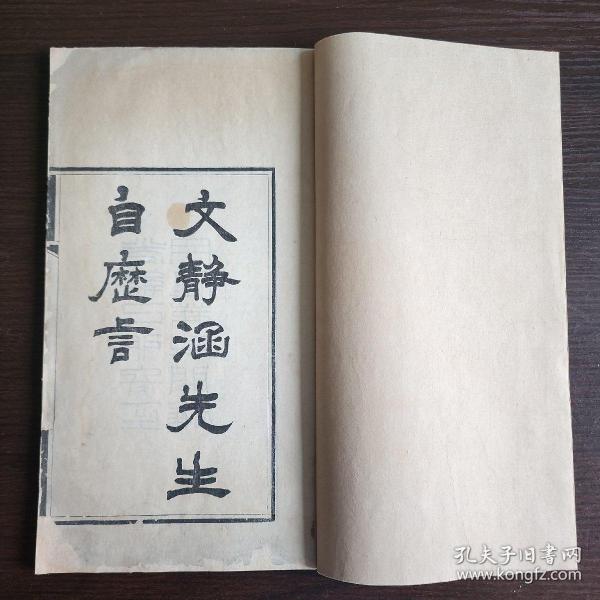 文静涵先生
自歷言
孔夫子旧书网
www.kongfz.com